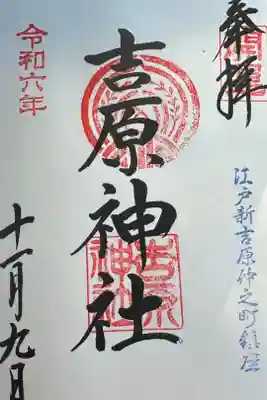 奉拝
江戸新吉原仲之町鎮座
吉原神社
吉原神社
令和六年
十一月九日